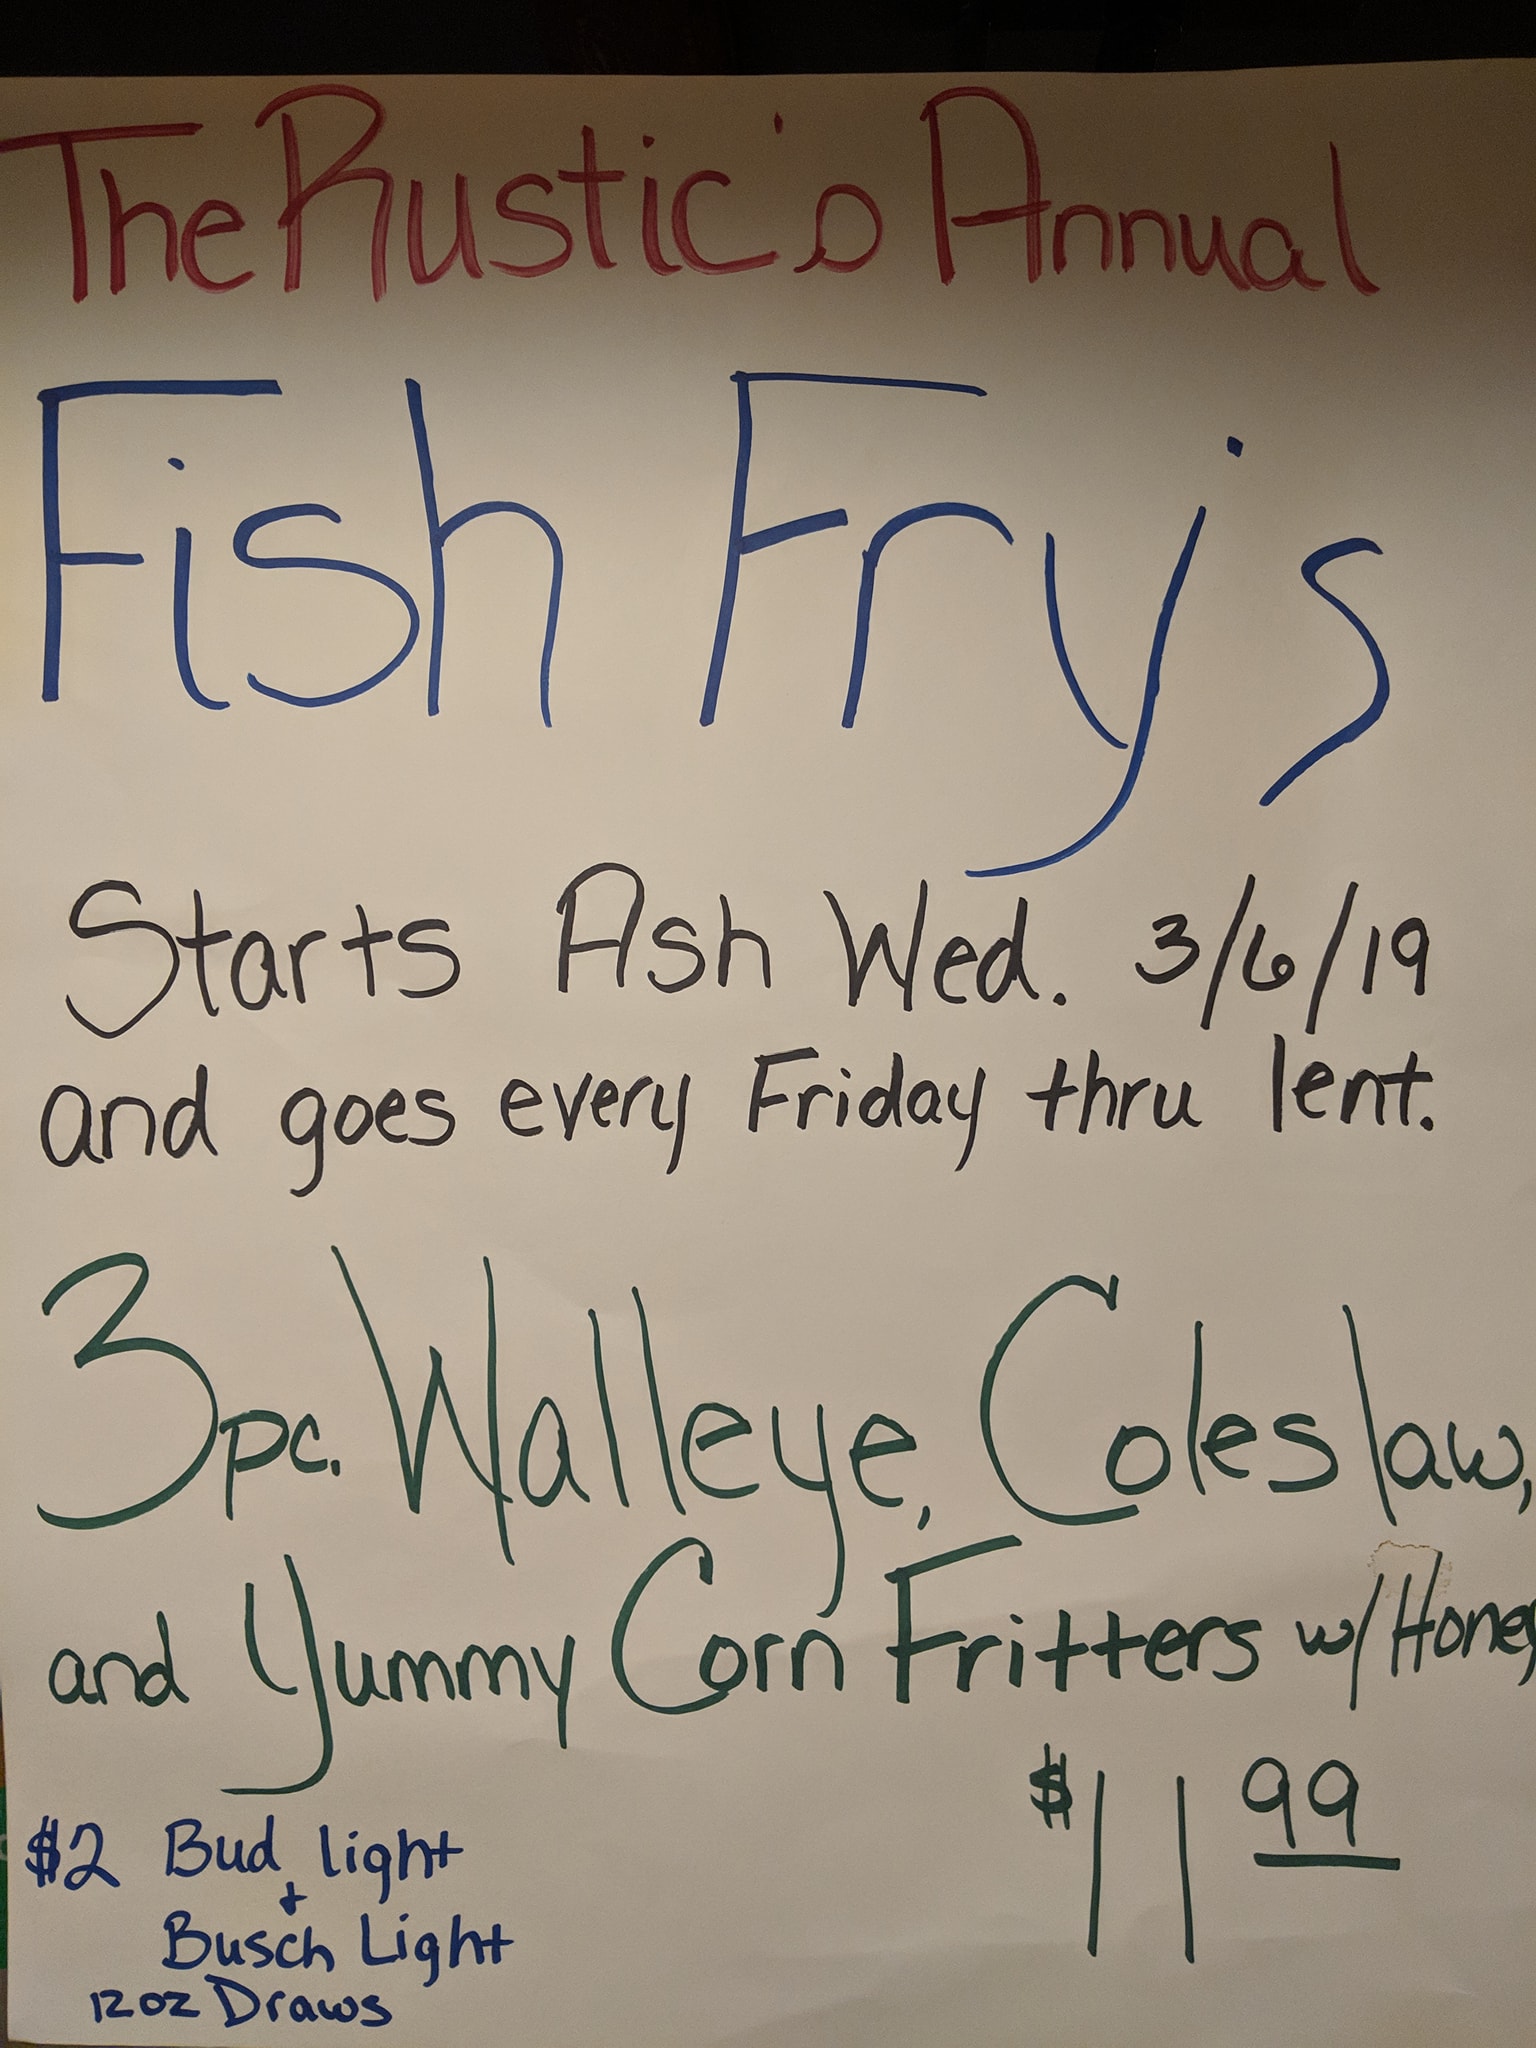 The Rustic's Annual
Fish Fry's
Starts Ash Wed. 3/6/19
and goes every Friday thru lent.
3pc. Walleye, Coleslaw,
and Yummy Corn Fritters w/Honey
$11 99
$2 Bud light
+
Busch Light
12oz Draws